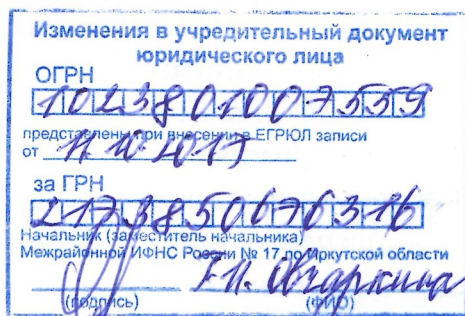 Изменения в учредительный документ
юридического лица
ОГРН
1023801007559
представлены при внесении в ЕГРЮЛ записи
от 11.10.2017
за ГРН
2173850676316
Начальник (заместитель начальника)
Межрайонной ИФНС России № 17 по Иркутской области
Овчаркина
(подпись) (ФИО)